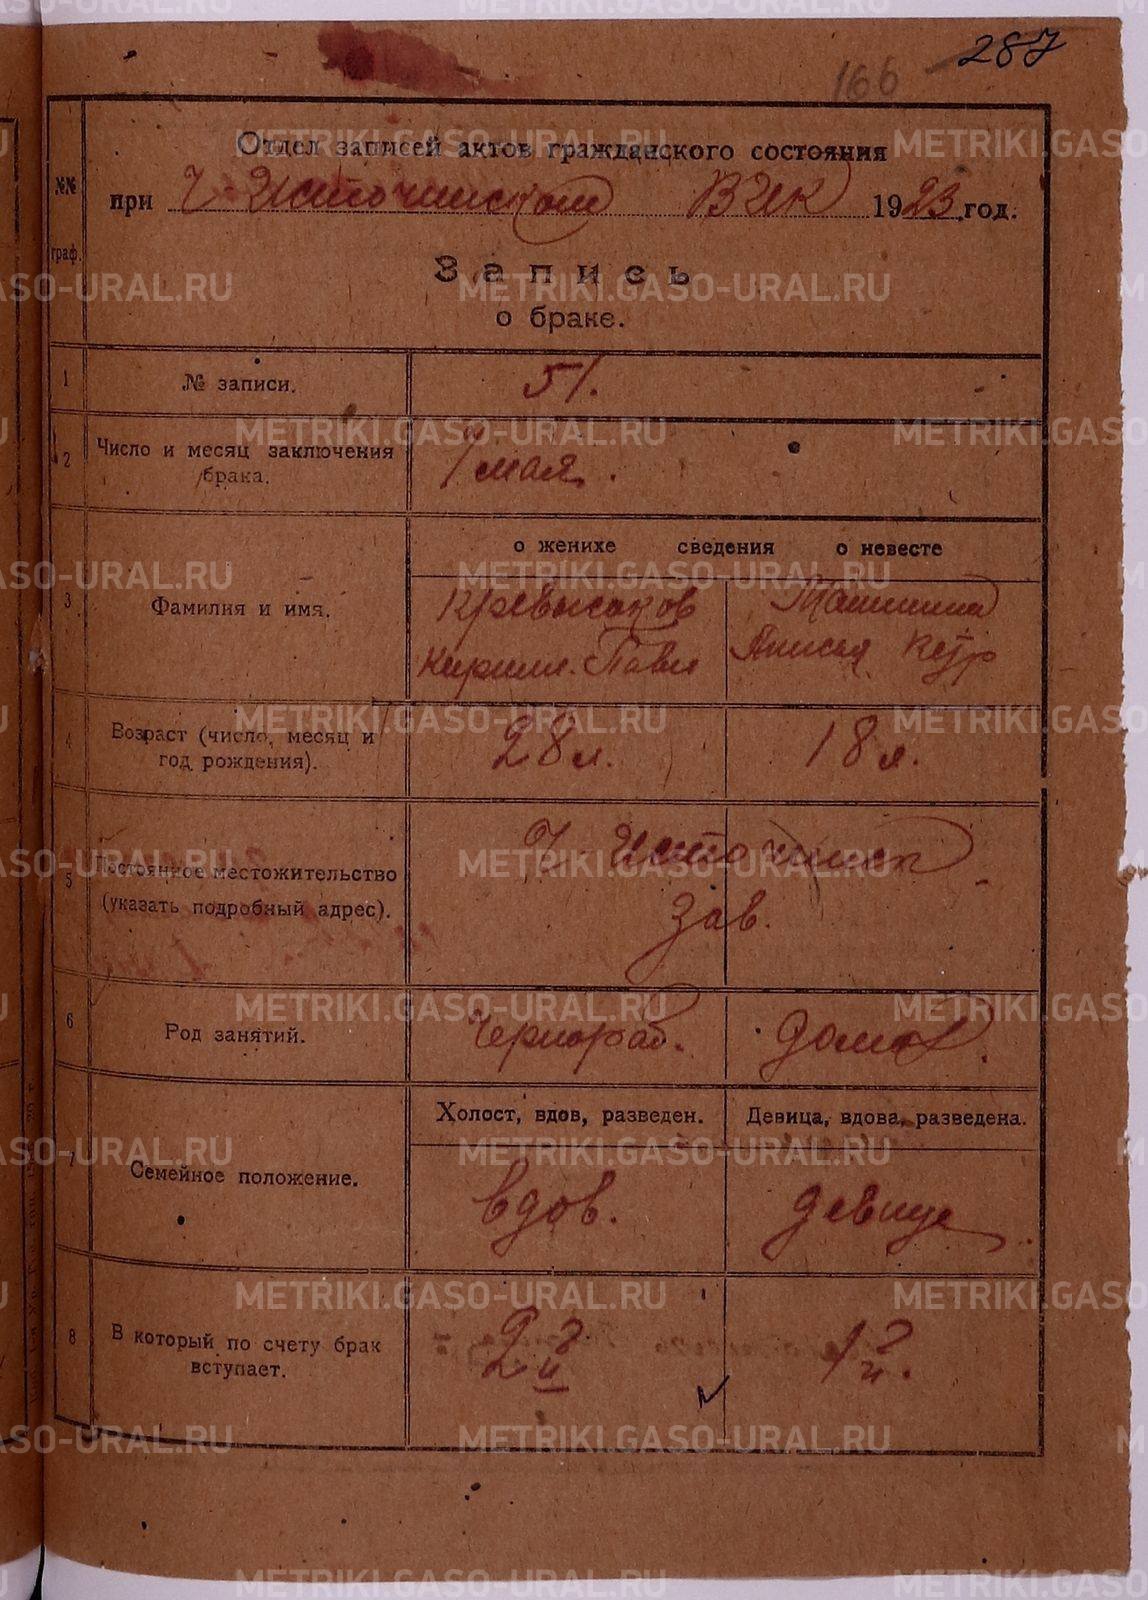 166 287
Отдел записей актов гражданского состояния
при Ч-Источинском ВИК 1923 год.
№№ граф.
Запись
о браке.
1 № записи. 51.
2 Число и месяц заключения брака. 7 мая.
о женихе сведения о невесте
3 Фамилия и имя.
Кирилл. Павл Анисья Петр
4 Возраст (число, месяц и год рождения). 28 л. 18 л.
5 Постоянное местожительство (указать подробный адрес). Ч-Источинск
Зав.
6 Род занятий. Чернораб. Домох.
Холост, вдов, разведен. Девица, вдова, разведена.
7 Семейное положение. вдов. девица
8 В который по счету брак вступает. 2й 1й.
METRIKI.GASO-URAL.RU